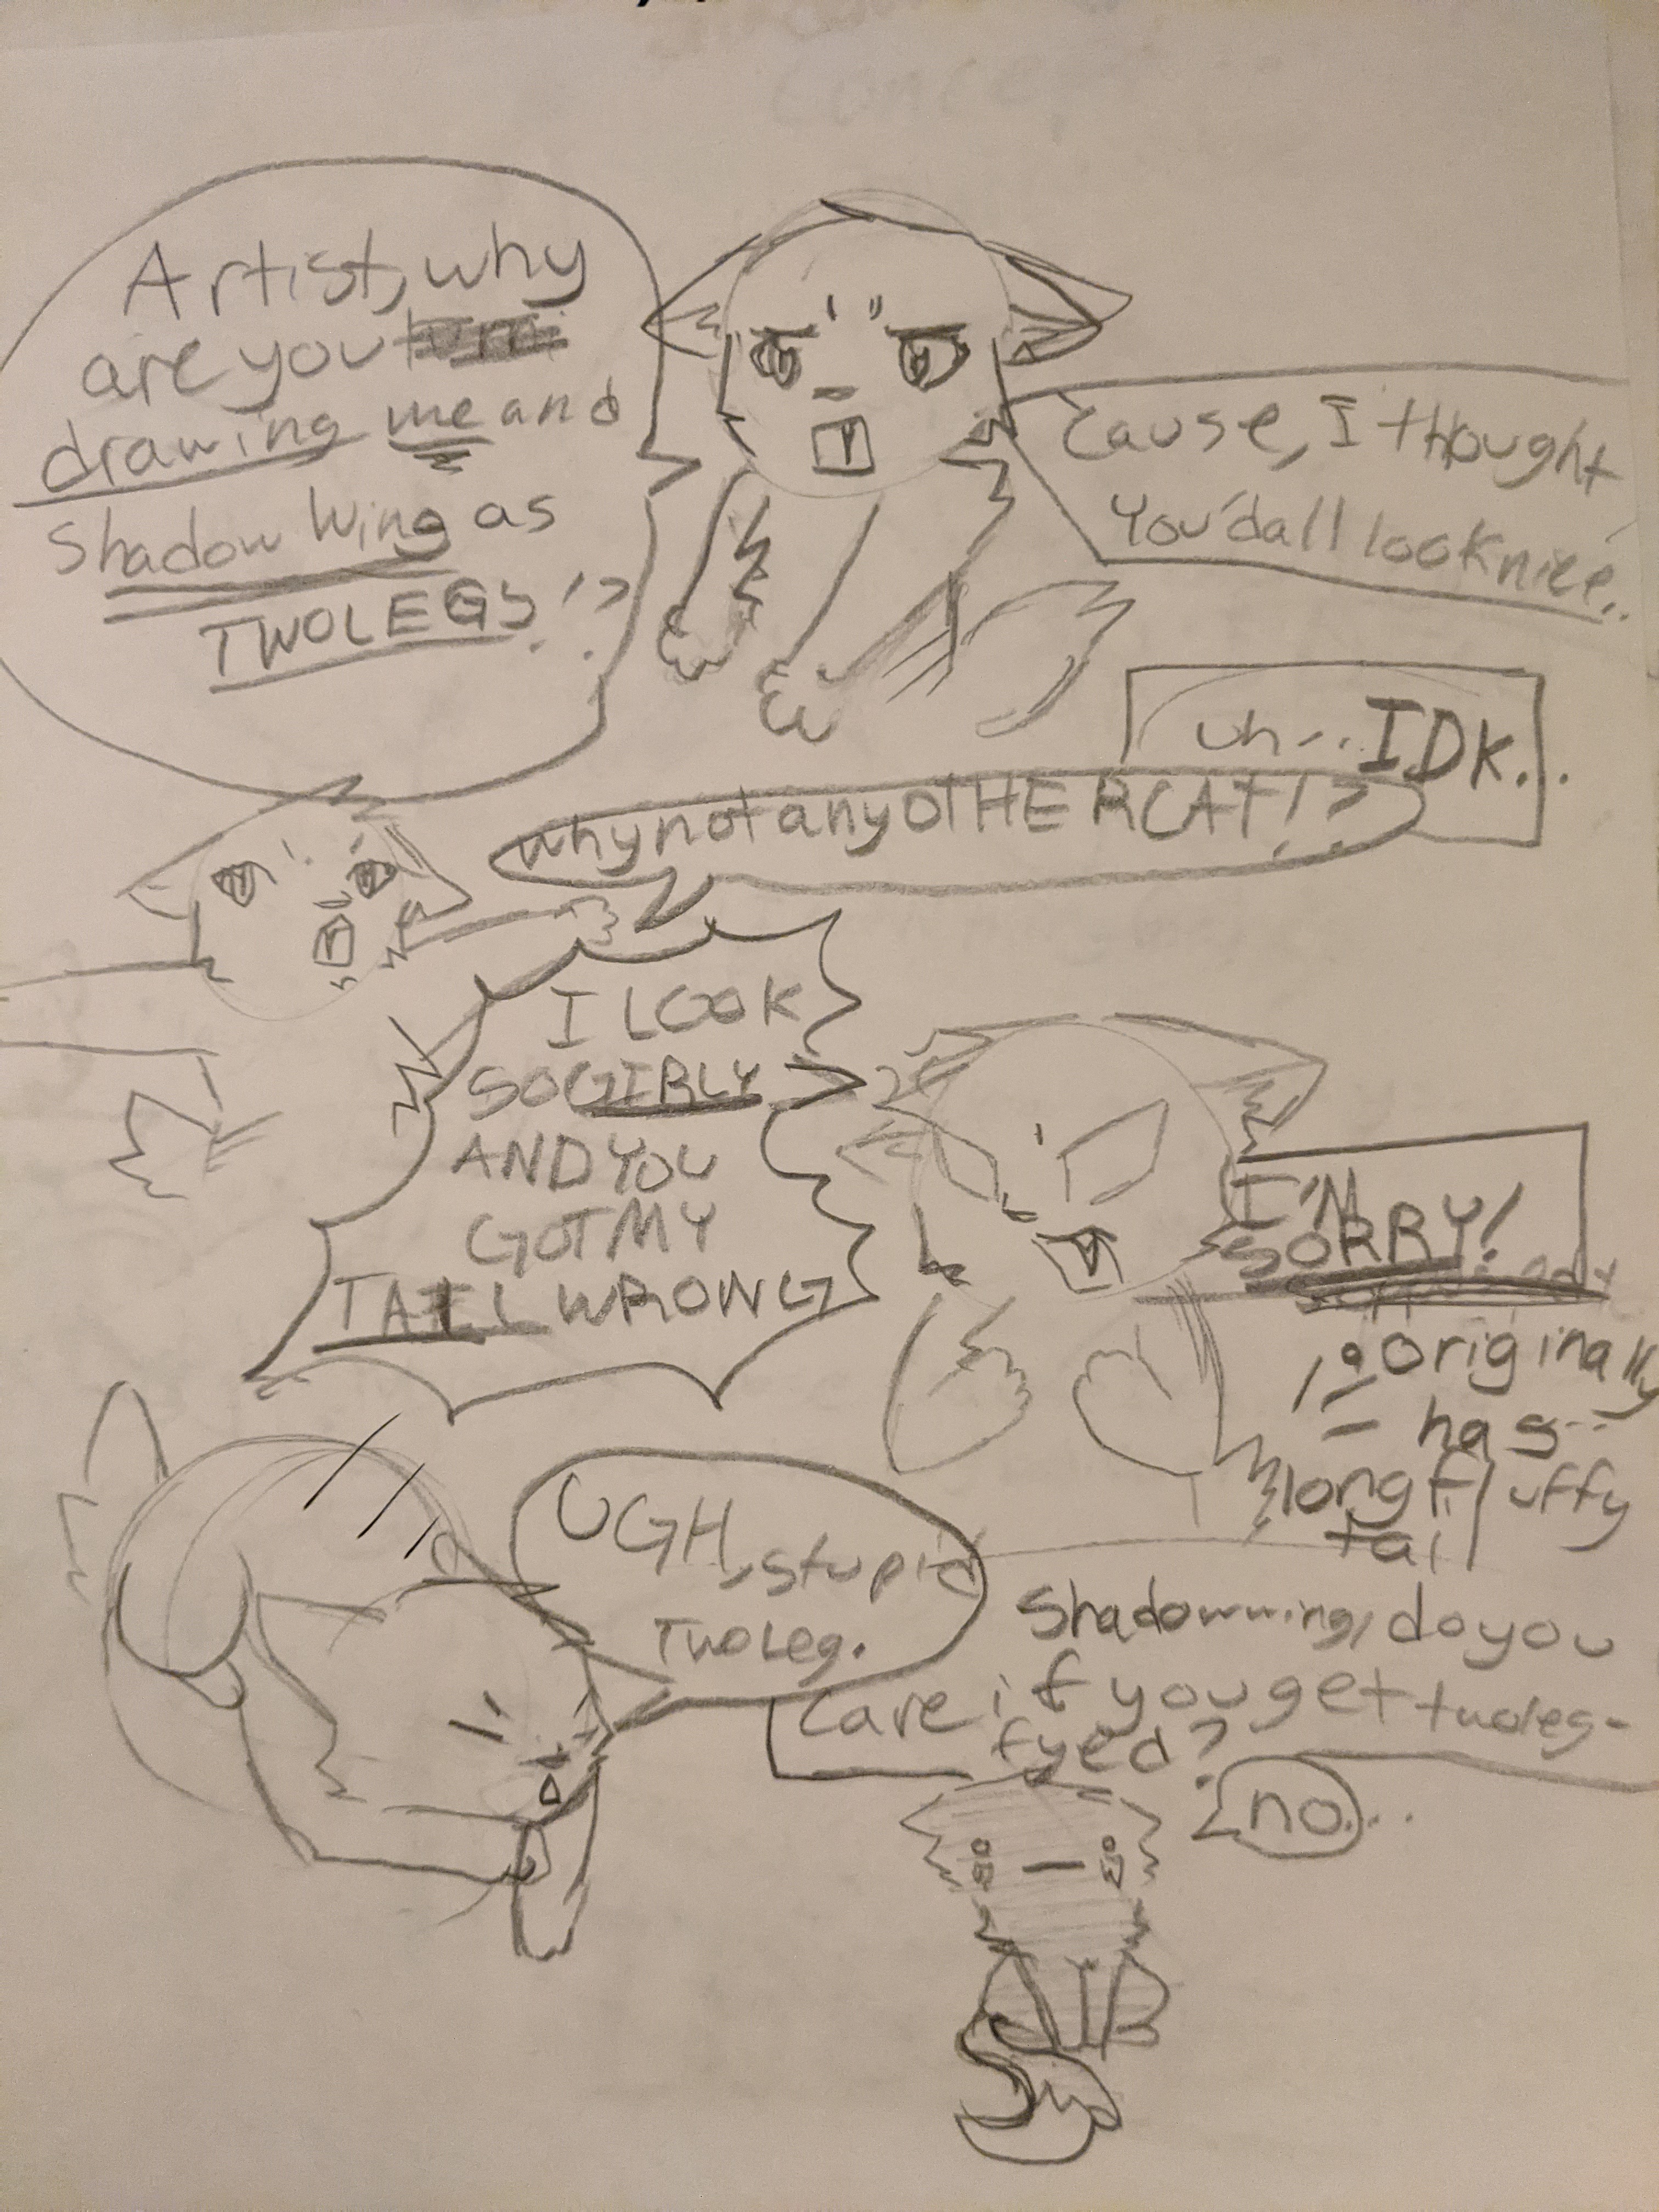 Concep
Artist, why
are you
drawing me and
shadow Wing as
TWOLEGS!?
'Cause, I thought
You'd all look nice..
uh... IDK...
why not any OTHER CAT!?
I LOOK
SO GIRLY
AND YOU
GOT MY
TAIL WRONG
I'M
SORRY!
originally
has...
long fluffy
tail
UGH, stupid
Twoleg.
Shadowwing, do you
care if you get twoleg-
fyed?
no...